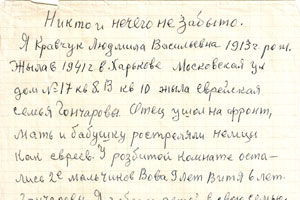 Никто и нечего не забыто.
Я Кравчук Людмила Васильевна 1913 г. рож.
Жыла в 1941 г в Харькове Московская ул
дом № 17 кв 8. В кв 10 жыла еврейская
семья Гончаровы. Отец ушол на фронт,
мать и бабушку ростреляли немцы
как евреев. У розбитой комнате оста-
лись 2е мальчиков Вова 9 лет Витя 6 лет
Гончаровы. Я в свою семью